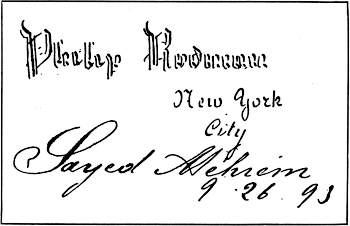 Philip
New York
City
Sayed
9 26 93